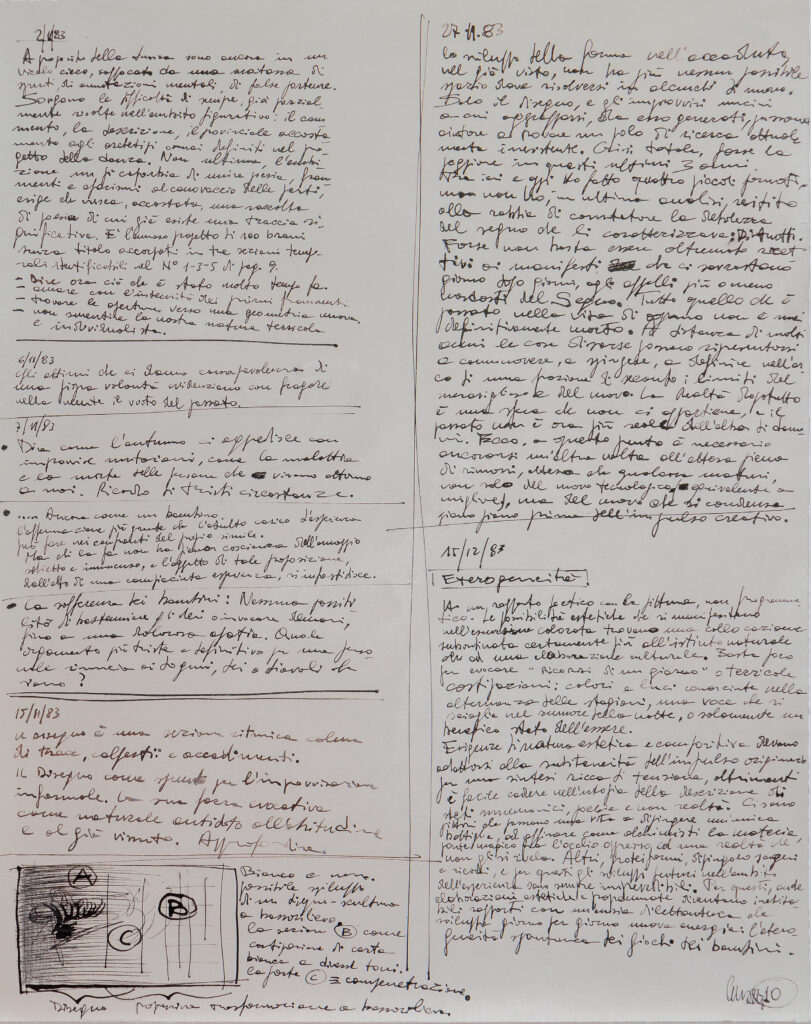 2/11/83
A proposito della Danza sono ancora in un
vicolo cieco, soffocato da una matassa di
spunti, di annotazioni mentali, di false partenze.
Sorgono le difficoltà di sempre, già parzial-
mente risolte nell'ambito figurativo: il com-
mento, la descrizione, il provinciale accosta-
mento agli archetipi ormai definiti nel pro-
getto della danza. Non ultima, l'ambi-
zione un pò caparbia di unire poesia, fram-
menti e aforismi al canovaccio delle parti,
esige che riesca, accostata, una raccolta
di poesia di cui già esiste una traccia si-
gnificativa. È l'annoso progetto di 100 brani
senza titolo accorpati in tre sezioni tempo-
rali identificabili nel N° 1-3-5 di pag. 9.
- Dire ora ciò che è stato molto tempo fa.
- amare con l'intensità dei primi frammenti.
- trovare le aperture verso una geometria nuova.
- non smentire la nostra natura terricola
e individualista.
6/11/83
Gli attimi che ci danno consapevolezza di
una pigra volontà evidenziano con fragore
nella mente il vuoto del passato.
7/11/83
• Dia come l'autunno ci appetisce con
improvvise mutazioni, come la malattia
e la morte delle persone che vivono attorno
a noi. Ricordo di tristi circostanze.
• .... Ancora come un bambino.
L'affermazione più grande che l'adulto carico d'esperienza
può fare nei confronti del proprio simile.
Ma chi la fa non ha piena coscienza dell'omaggio
schietto e immenso, e l'oggetto di tale proposizione,
dall'alto di una compiaciuta esperienza, si infastidisce.
• La sofferenza dei bambini: Nessuna possibi
lità di bestemmiare gli dei o invocare demoni,
fino a una dolorosa apatia. Quale
argomento più triste e definitivo per una perso
nale rinuncia ai dogmi, dei o diavoli che
siano?
15/11/83
Il disegno è una sezione ritmica colma
di tracce, calpestii e accadimenti.
Il Disegno come spunto per l'improvvisazione
informale. La sua forza evocativa
come naturale antidoto all'abitudine
e al già vissuto. Approfondire.
A
B
C
Bianco e nero.
possibile sviluppo
di un disegno-scultura
a bassorilievo.
la sezione B come
costipazione di carta
bianca a diversi toni.
la parte C = compenetrazione.
Disegno progressiva trasformazione a bassorilievo.
27.11.83
Lo sviluppo della forma nell'accaduto,
nel già visto, non ha più nessun possibile
spazio dove risolversi in alcunché di nuovo.
Solo il disegno, e gli improvvisi uncini
a cui aggrapparsi, da esso generati, possono
aiutare a trovare un polo di ricerca attual-
mente inesistente. Crisi totale, forse la
peggiore in questi ultimi 3 anni.
Tra ieri e oggi ho fatto quattro piccoli formati,
ma non ho, in ultima analisi, resistito
alla rabbia di constatare la debolezza
del segno che li caratterizzava: Distrutti.
Forse non basta essere oltremodo ricet
tivi ai manifesti che ci sovrastano
giorno dopo giorno, agli appelli più o meno
nascosti del Segno. Tutto quello che è
passato nella vita di ognuno non è mai
definitivamente morto. A distanza di molti
anni le cose disperse possono ripresentarsi
a commuovere, a spingere, a definire nell'ar
co di una frazione di secondo i limiti del
meraviglioso e del nuovo. La Realtà dopotutto
è una sfera che non ci appartiene, e il
passato non è ora più reale dell'alba di doma
ni. Ecco, a questo punto è necessario
ancorarsi un'altra volta all'attesa piena
di rimorsi, attesa che qualcosa maturi,
non solo del nuovo tecnologico, equivalente a
migliore, ma del nuovo che si condensa
piano piano prima dell'impulso creativo.
15/12/83
Eterogeneità
Ho un rapporto poetico con la pittura, non programma
tico. Le possibilità estetiche che si manifestano
nell'emersione colorata trovano una collocazione
subordinata certamente più all'istinto naturale
che ad una elaborazione culturale. Basta poco
per evocare "Ricordi di un giorno" o terricole
costipazioni; colori e luci conosciute nella
alternanza delle stagioni, una voce che si
scioglie nel rumore della notte, o solamente un
benefico stato dell'essere.
Esigenze di natura estetica e compositiva devono
adattarsi alla subitaneità dell'impulso originario
per una sintesi ricca di tensione, altrimenti
è facile cadere nell'utopia della descrizione di
stati mnemonici, poetici e non realtà. Ci sono
pittori che passano una vita a dipingere un'unica
bottiglia, ad affinare come alchimisti la materia,
fonte magica per l'occhio aperto ad una realtà che
non gli si svela. Altri, proteiformi, dipingono sogni
e ricordi, e per questi gli sviluppi futuri nell'ambito
dell'esperienza sono sempre imprevedibili. Per questi, anche
elaborazioni estetiche e programmate diventano inevita
bili rapporti con un'ansia dilettantesca che
sviluppa giorno per giorno nuova energia: l'etero
geneità spontanea dei giochi dei bambini.
10